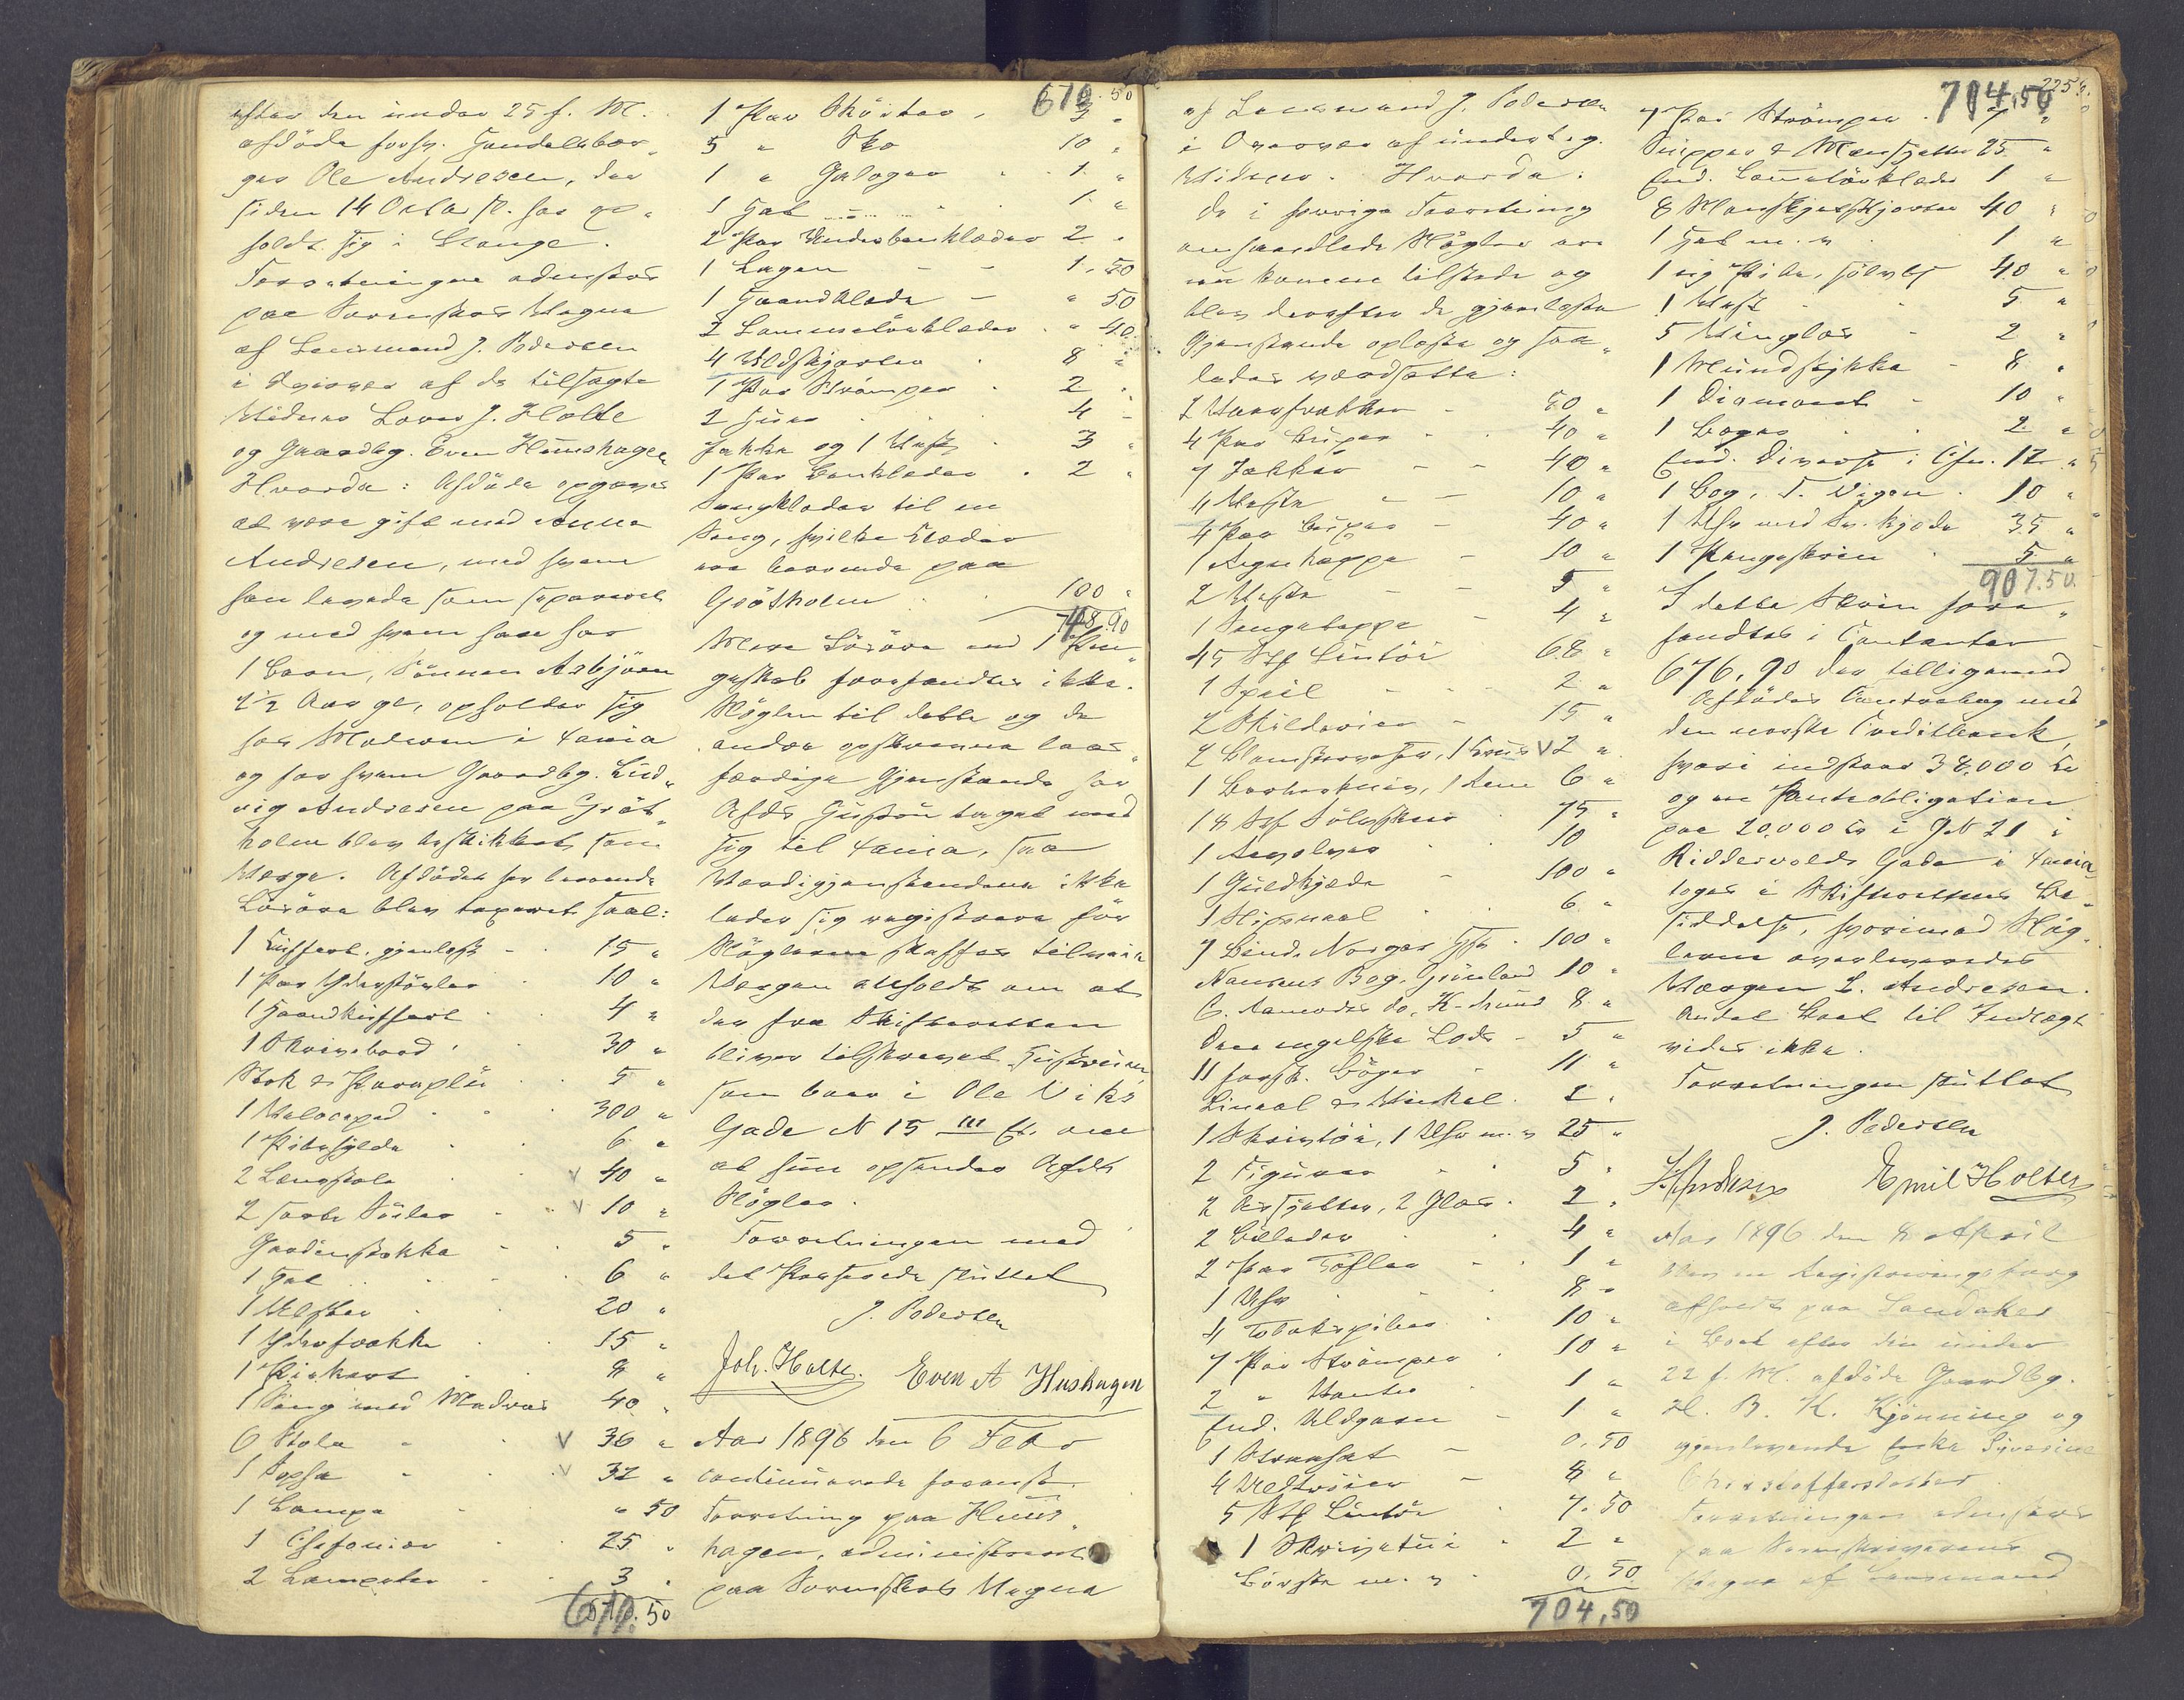 efter den under 25 f. M.
afdøde forhv. Handelsbor-
ger Ole Andresen, der
siden 14 Octbr. f. har op-
holdt sig i Stange.
Forretningen administ.
paa Sorenskr. Vegne
af Lensmand J. Pedersen
i Overvær af de tilsagte
Vidner Lover J. Holte
og Gaardbg. Even Huushagen
Hvorda: Afdøde opgaves
at være gift med Anna
Andresen, med hvem
han levede som separeret
og med hvem han har
1 Barn, Sønnen Asbjørn
2½ Aar gl., opholder sig
hos Moderen i Xania
og for hvem Gaardbg. Lud-
vig Andresen paa Grøt-
holm blev beskikket som
Værge. Afdødes her beroende
Løsøre blev taxeret saal:
1 Kuffert, gjenlaast 15 "
1 Par Yderstøvler 10 "
1 Haandkuffert 4 "
1 Skrivebord 30 "
Stok & Paraply 5 "
1 Veloceped 300 "
1 Pibehylde 6 "
2 Lænestole 40 "
2 sorte Søiler 10 "
Gardinstokke 5 "
1 Hat 6 "
1 Ulster 20 "
1 Yderfrakke 15 "
1 8 "
1 Seng med Madras 40 "
6 Stole 36 "
1 Sofa 32 "
1 Lampe " 50
1 Chefonier 25 "
2 Lampetter 3 "
670.50
670.50
1 Par Skøiter 3 "
5 " Sko 10 "
1 " Galoger 1 "
1 Hat 1 "
2 Par Underbenklæder 2 "
1 Lagen 1,50
1 Haandklæde " 50
2 Lommetørklæder " 40
4 Uldskjorter 8 "
1 Par Strømper 2 "
2 Huer 4 "
Jakke og 1 Vest 3 "
1 Par Benklæder 2 "
Sengklæder til en
Seng, hvilke Klæder
ere beroende paa
Grøtholm 100 "
748.90
Mere Løsøre end 1 Pen-
geskab forefandtes ikke.
Nøglen til dette og de
andre opskrevne laas-
færdige Gjenstande har
Afds Hustru taget med
sig til Xania, saa
Værdigjenstandene ikke
lader sig registrere før
Nøglerne skaffes tilveie
Værgen anholdt om at
der fra Skifteretten
bliver tilskrevet Hustruen,
som boer i Ole Viks
Gade N 15 III Et. om
at hun opsender Afds
Nøgler.
Forretningen med
det Passerede sluttet
J. Pedersen
Joh. Holte. Even A Hushagen
Aar 1896 den 6 Febr
continuerede foransk.
Forretning paa Huus-
hagen, administreret
paa Sorenskrs Vegne
af Lensmand J. Pedersen
i Overvær af underteg.
Vidner. Hvorda:
De i forrige Forretning
omhandlede Nøgler ere
nu komne tilstede og
blev derefter de gjenlaaste
Gjenstande oplaaste og saa-
ledes værdsatte:
2 Herrefrakker 50 "
4 Par Buxer 40 "
7 Jakker 40 "
4 Veste 10 "
4 Par Buxer 40 "
1 Regnkappe 10 "
2 Veste 5 "
1 Sengeteppe 4 "
45 Stk Lintøi 68 "
1 Speil 2 "
2 Skilderier 15 "
2 Blomstervaser, 1 Krus V 2 "
1 6 "
18 Stk Sølvskeer 75 "
1 Revolver 10
1 Guldkjæde 100 "
1 6 "
7 Bind. Norges Hist. 100 "
Nansens Bog, Grønland 10 "
C. do, K-hund 8 "
Den engelske Lods 5 "
11 forsk. Bøger 11 "
Lineal & Vinkel 2 "
1 Skrivtøi, 1 Uhr m. v 25 "
2 Figurer 5 "
2 Asjetter, 2 Glas 2 "
2 Billeder 4 "
2 Par Tøfler 1 "
1 Uhr 8 "
4 Tobakspiber 10 "
7 Par Strømper 10 "
2 " Vanter 1 "
End. Uldgarn 1 "
1 Straahat 0.50
4 Uldtrøier 8 "
5 Stk Lintøi 7.50
1 Skrivetui 2 "
Børste m. v 0.50
704,50
225
704,50
7 Par Strømper 7 "
Snipper & Mansjetter 25 "
End. Lommetørklæder 1 "
8 Mansjetskjorter 40 "
1 Hat m. v 1 "
1 Pibe, sølvb 40 "
1 Vest 5 "
5 Vinglas 2 "
1 Mundstykke 8 "
1 Diamant 10 "
1 Boger 2 "
End. Diverse i Chn. 12 "
1 Bog, T. Vigen 10 "
1 Uhr med Sv. Kjæde 35 "
1 Pengeskrin 5 "
907.50.
I dette Skrin fore-
fandtes i Contanter
676,90 der tilligemed
Afdødes Contrabog med
den norske Creditbank,
hvori indstaar 38,000 Kr
og en Panteobligation
paa 20,000 Kr i G. N 21 i
Riddervolds Gade i Xania
toges i Skifterettens Be-
siddelse, hvorimod Nøg-
lerne overleveredes
Værgen L. Andresen.
Andet Boet til Indtægt
vides ikke.
Forretningen sluttet
J. Pedersen
Emil Holter
Aar 1896 den 8 April
blev en Registreringsforr
afholdt paa Landaker
i Boet efter den under
22 f. M. afdøde Gaardbg.
H. B. K. Kjønning og
gjenlevende Enke Siverine
Christoffersdatter
Forretningen administ
paa Sorenskriverens
Vegne af Lensmand